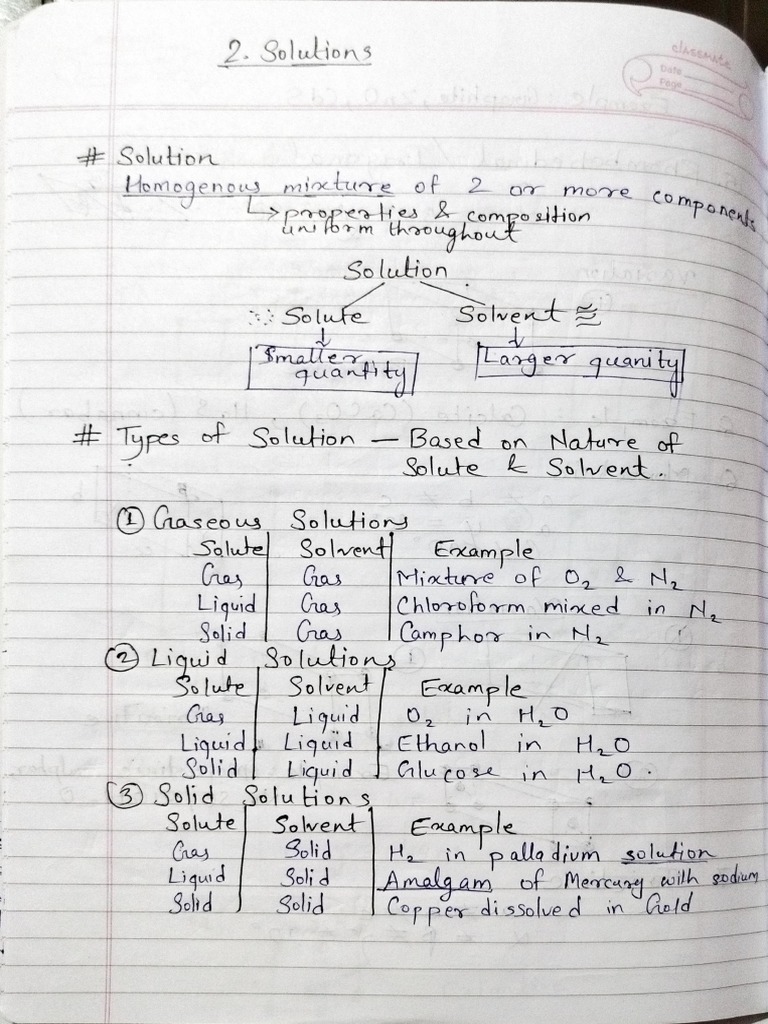 2. Solutions
classmate
Date
Page
# Solution
Homogenous mixture of 2 or more components
↳ properties & composition
uniform throughout
Solution
Solute Solvent
Smaller quantity Larger quanity
# Types of Solution — Based on Nature of
Solute & Solvent.
① Gaseous Solutions
Solute Solvent Example
Gas Gas Mixture of O₂ & N₂
Liquid Gas Chloroform mixed in N₂
Solid Gas Camphor in N₂
② Liquid Solutions
Solute Solvent Example
Gas Liquid O₂ in H₂O
Liquid Liquid Ethanol in H₂O
Solid Liquid Glucose in H₂O.
③ Solid Solutions
Solute Solvent Example
Gas Solid H₂ in palladium solution
Liquid Solid Amalgam of Mercury with sodium
Solid Solid Copper dissolved in Gold